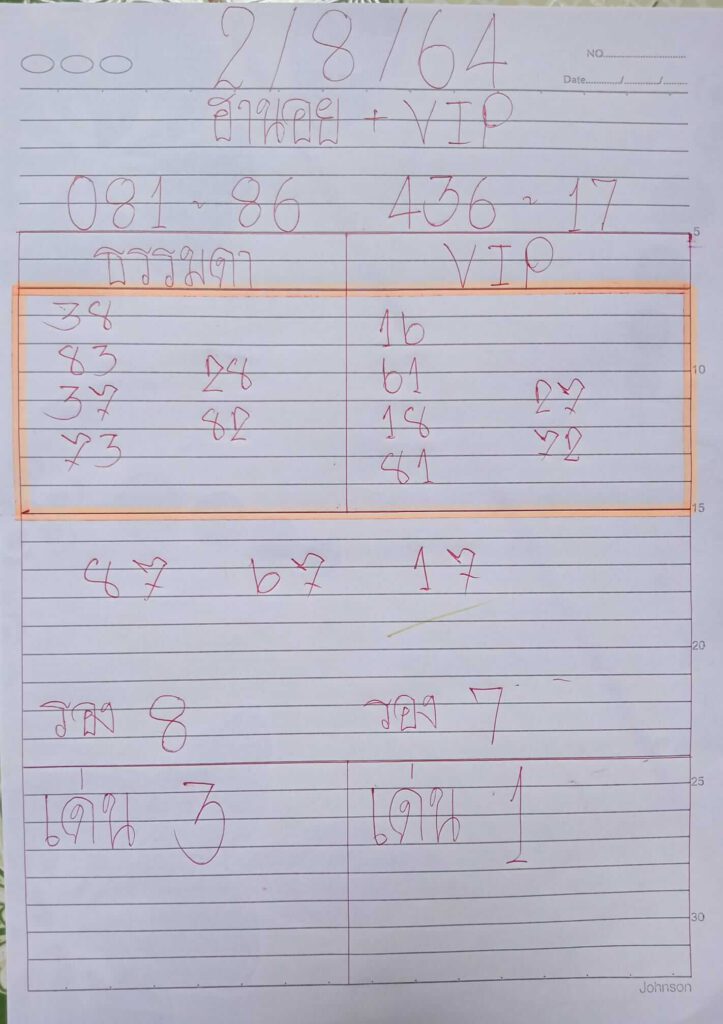 2/8/64
NO.
Date / /
ฮานอย + VIP
081 - 86 436 - 17
5
ธรรมดา VIP
38 16
83 28 61 10
37 82 18 27
73 81 72
15
87 67 17
20
รอง 8 รอง 7
25
เด่น 3 เด่น 1
30
Johnson